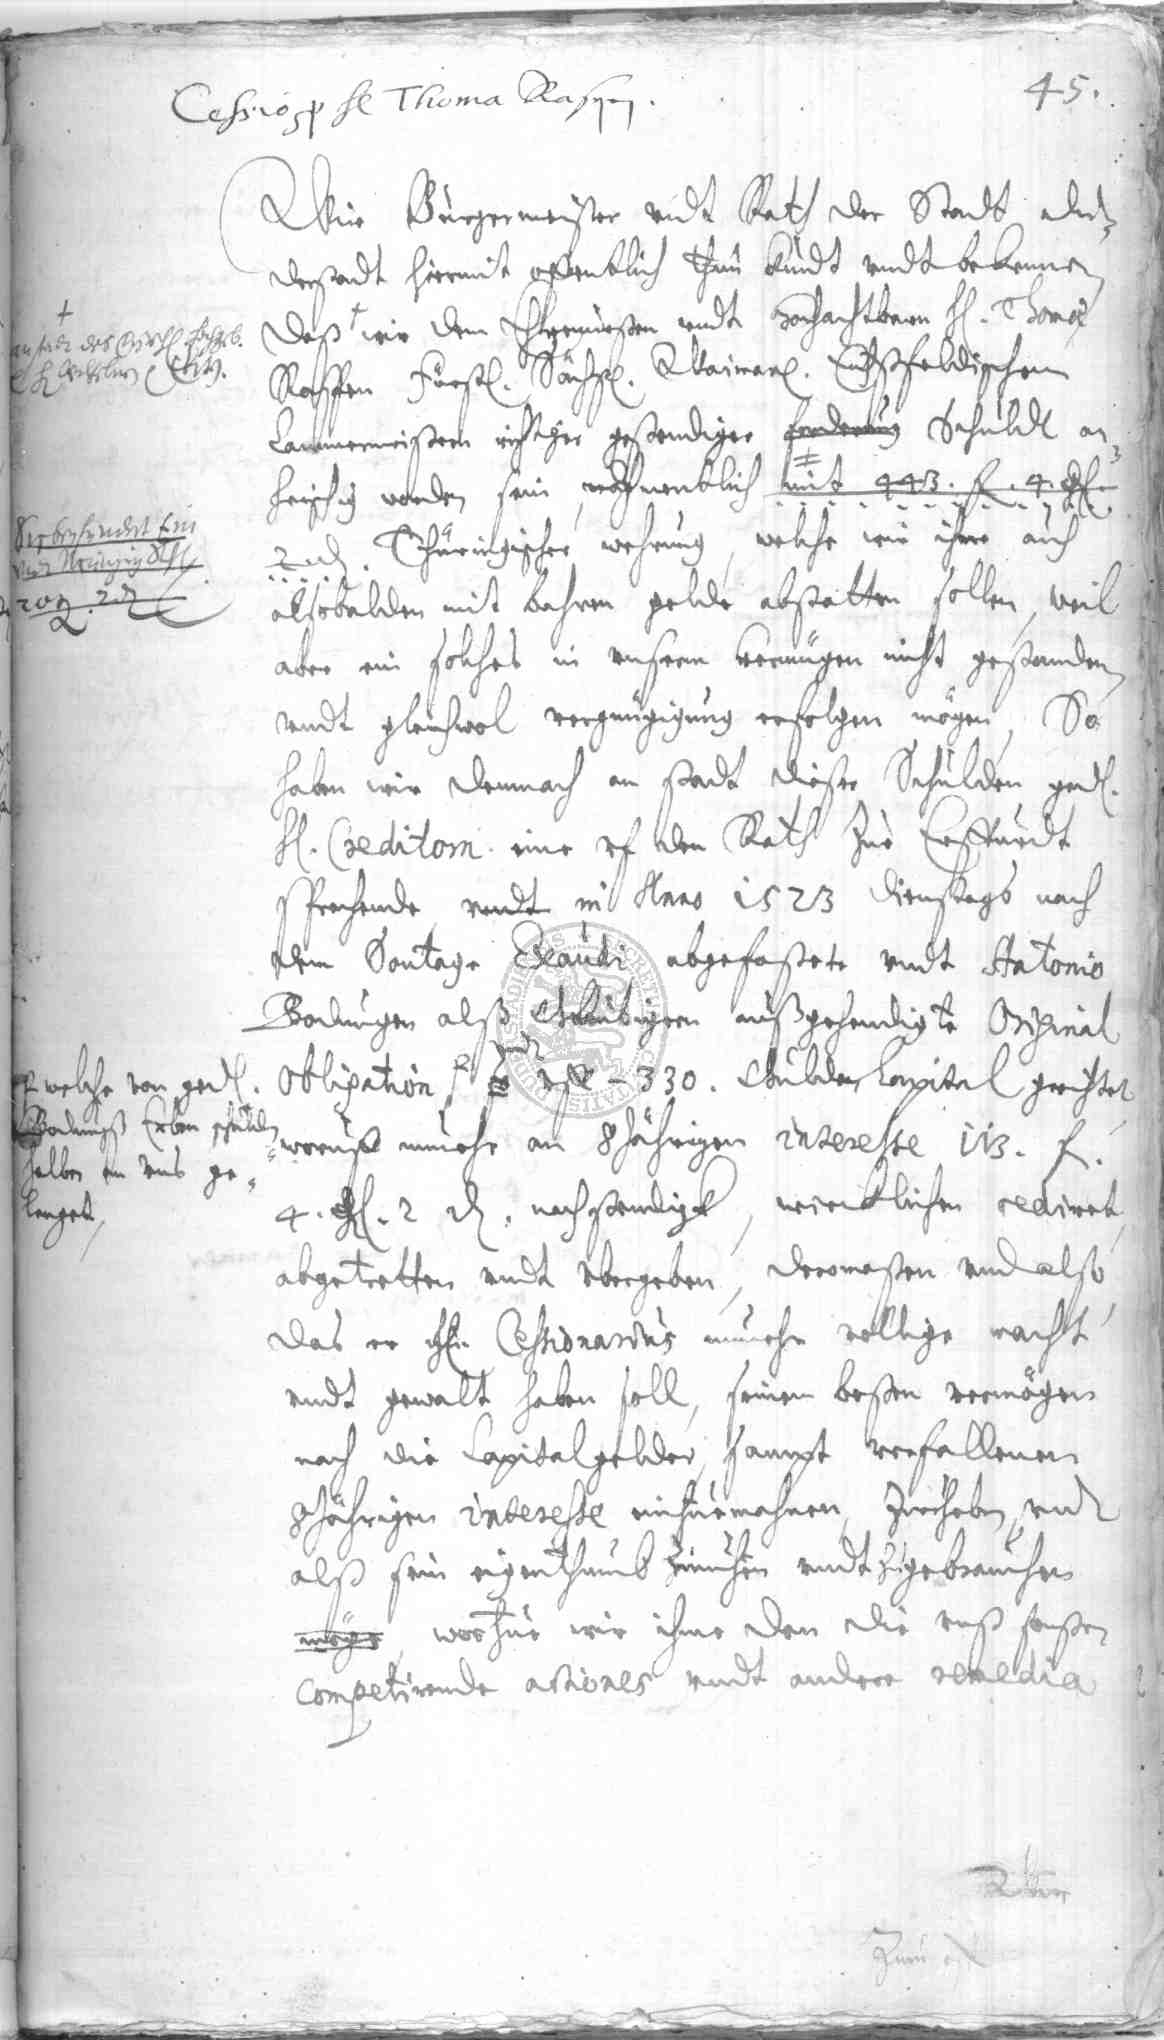 45.
Cessio p H Thoma Raspen.
Wir Bürgermeister undt Rath der Stadt Du-
derstadt hiermit offentlich thun kundt undt bekennen
Daß + wir dem Ehrnvesten undt Vorachtbarn H. Thomæ
Raspen Fürstl. Sächs. Weimarl. Eichsfeldischen
Cammermeistern richtiger gestendiger forderung Schuldt an
heischig worden sein, nahmentlich mit 443. f. 4. gl. 3
2 d. Thüringischer wehrung, welche wir ihme auch
alsobalden mit bahren gelde abstatten sollen, weil
aber ein solches in unserm vermügen nicht gestanden,
undt gleichwol vergnügigung erfolgen mögen, So
haben wir demnach an stadt dieser Schulden ged.
H. Creditorn eine uf den Rath zue Erffurdt
sprechende undt in Anno 1523 dienstags nach
dem Sontage Exaudi abgefaßete undt Antonio
Bodungen alß Gleubigern außgehendigte Original
Obligation undt uff 330. Gulden Capital gerichtet
woruff nunehr an 8 Jährigen interesse 113. f.
4. gl. 2 d. nachstendigk, wircklichen cediret,
abgetretten undt ubergeben, dermaßen und also,
das er H. Cessionarius nunehr vollige macht
undt gewalt haben soll, seinem besten vermögen
nach die Capitalgelder, sampt verfallenen
8 Jährigen interesse einzuemahnen, zuerheben, und
alß sein eigenthumb zunutzen undt zugebrauchen
möge, worzue wir ihme den die unß sonsten
competirende actiones undt andere remedia
+
an stadt des
welche von ged.
Bodungß Erben schulden
halber an uns ge-
langet,